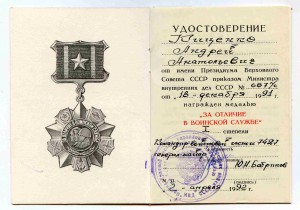 УДОСТОВЕРЕНИЕ
Гищенко
Андрей
Анатольевич
от имени Президиума Верховного
Совета СССР приказом Министра
внутренних дел СССР №
от "18" декабря 1991 г.
награжден медалью
„ЗА ОТЛИЧИЕ
В ВОИНСКОЙ СЛУЖБЕ"
I степени
Командир войсковой части 7421
генерал-майор
Ю.Н. Бобринов
(подпись)
"2" апреля 1992 г.